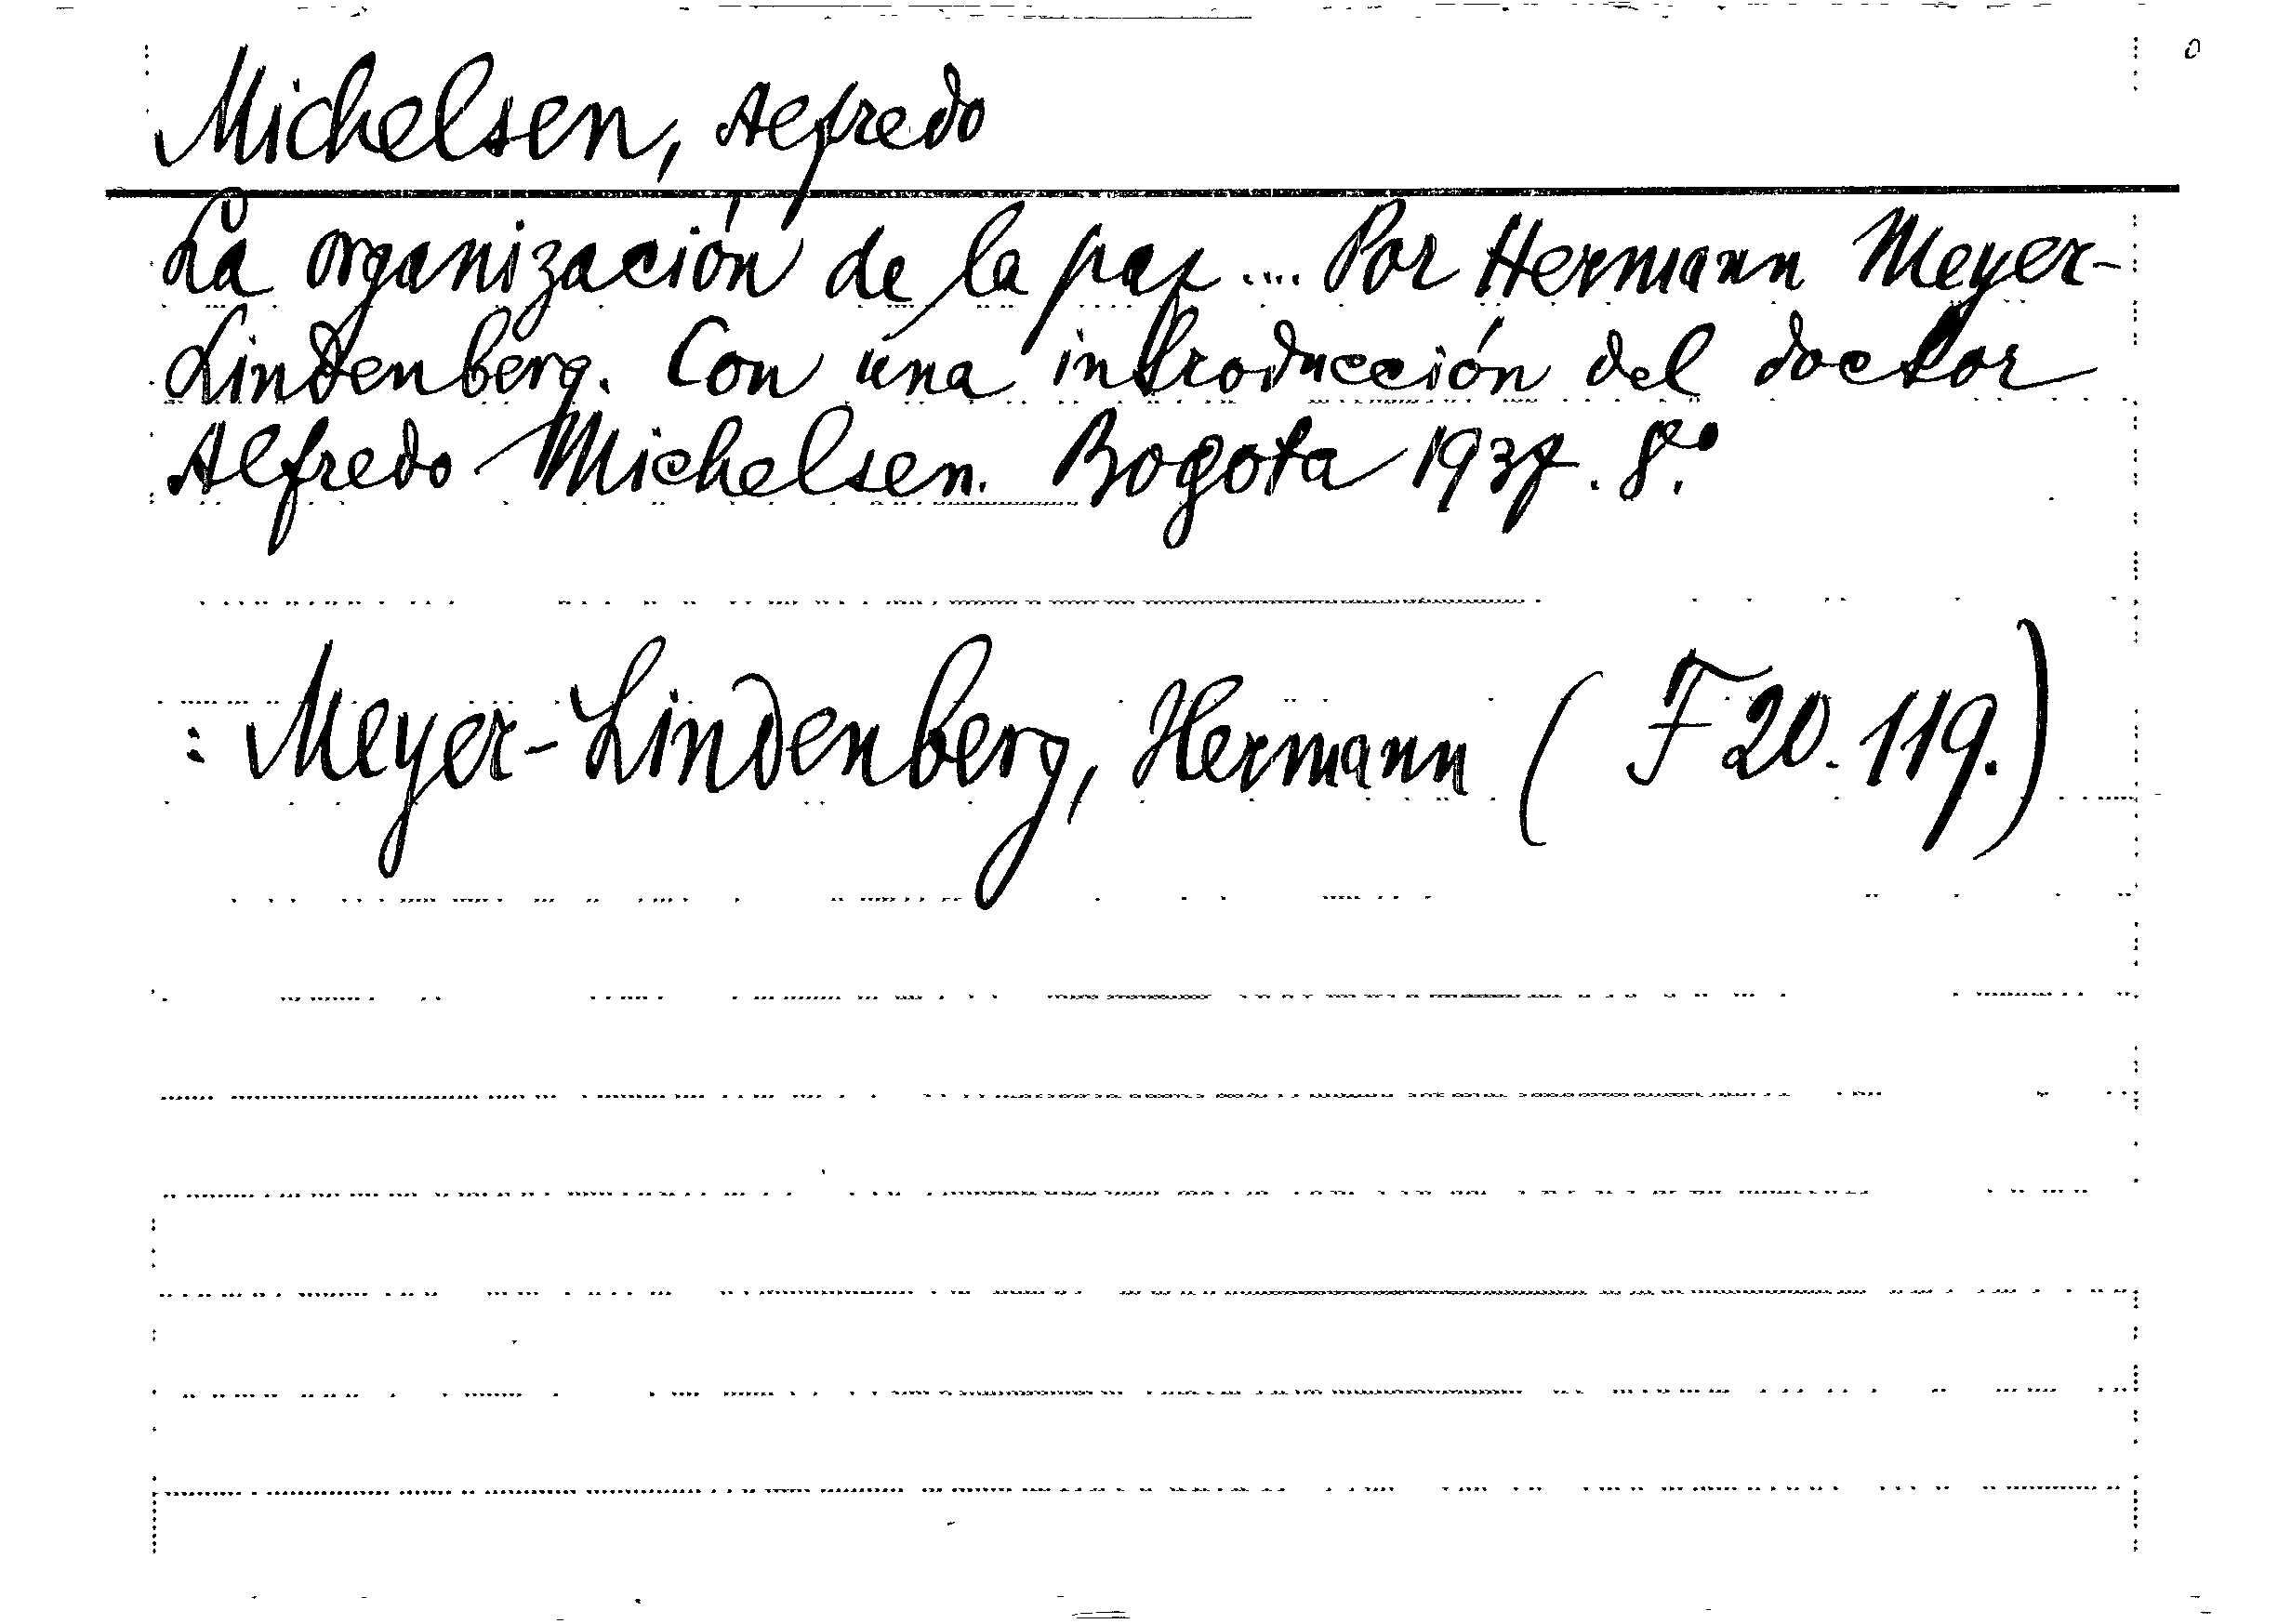 Michelsen, Alfredo
La organización de la paz .... Por Hermann Meyer-
Lindenberg. Con una introducción del doctor
Alfredo Michelsen. Bogota 1937. 8.°
: Meyer-Lindenberg, Hermann ( F 20.119.)